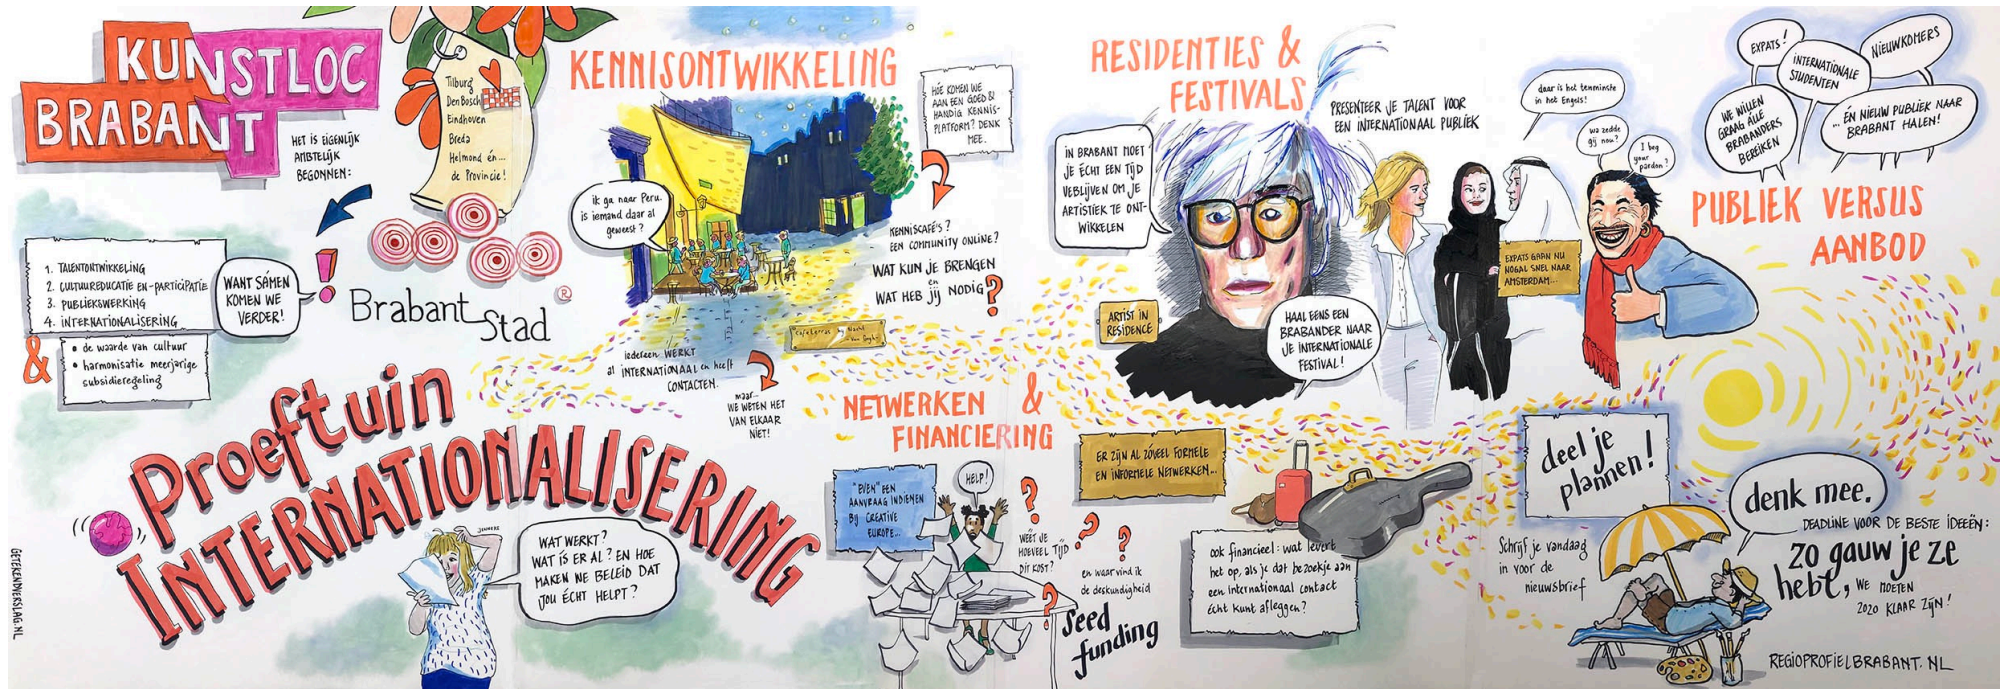 KUNSTLOC
BRABANT
HET IS EIGENLIJK
AMBTELIJK
BEGONNEN:
Tilburg
Den Bosch
Eindhoven
Breda
Helmond én...
de Provincie!
1. TALENTONTWIKKELING
2. CULTUUREDUCATIE EN -PARTICIPATIE
3. PUBLIEKSWERKING
4. INTERNATIONALISERING
&
• de waarde van cultuur
• harmonisatie meerjarige
subsidieregeling
WANT SÁMEN
KOMEN WE
VERDER!
!
BrabantStad
®
Proeftuin
INTERNATIONALISERING
WAT WERKT?
WAT ÍS ER AL? EN HOE
MAKEN WE BELEID DAT
JOU ÉCHT HELPT?
GETEKENDVERSLAG.NL
KENNISONTWIKKELING
ik ga naar Peru.
is iemand daar al
geweest?
HOE KOMEN WE
AAN EEN GOED &
HANDIG KENNIS-
PLATFORM? DENK
MEE.
KENNISCAFÉ'S?
EEN COMMUNITY ONLINE?
WAT KUN JE BRENGEN
en
WAT HEB JIJ NODIG?
"Caféterras by Nacht
- Van Gogh-
iedereen WERKT
al INTERNATIONAAL en heeft
CONTACTEN.
maar...
WE WETEN HET
VAN ELKAAR
NIET!
NETWERKEN &
FINANCIERING
"EVEN" EEN
AANVRAAG INDIENEN
BIJ CREATIVE
EUROPE...
HELP!
?
WEET JE
HOEVEEL TIJD
DIT KOST?
?
?
en waar vind ik
de deskundigheid
?
Seed
funding
ER ZIJN AL ZÓVEEL FORMELE
EN INFORMELE NETWERKEN...
ook financieel: wat levert
het op, als je dat bezoekje aan
een internationaal contact
écht kunt afleggen?
RESIDENTIES &
FESTIVALS
IN BRABANT MOET
JE ÉCHT EEN TIJD
VEBLIJVEN OM JE
ARTISTIEK TE ONT-
WIKKELEN
ARTIST IN
RESIDENCE
PRESENTEER JE TALENT VOOR
EEN INTERNATIONAAL PUBLIEK
HAAL EENS EEN
BRABANDER NAAR
JE INTERNATIONALE
FESTIVAL!
daar is het tenminste
in het Engels!
wa zedde
gij nou?
I beg
your
pardon?
EXPATS GAAN NU
NOGAL SNEL NAAR
AMSTERDAM...
EXPATS!
INTERNATIONALE
STUDENTEN
NIEUWKOMERS
WE WILLEN
GRAAG ÁLLE
BRABANDERS
BEREIKEN
... ÉN NIEUW PUBLIEK NAAR
BRABANT HALEN!
PUBLIEK VERSUS
AANBOD
deel je
plannen!
Schrijf je vandaag
in voor de
nieuwsbrief
denk mee.
DEADLINE VOOR DE BESTE IDEEËN:
zo gauw je ze
hebt, WE MOETEN
2020 KLAAR ZIJN!
REGIOPROFIELBRABANT.NL